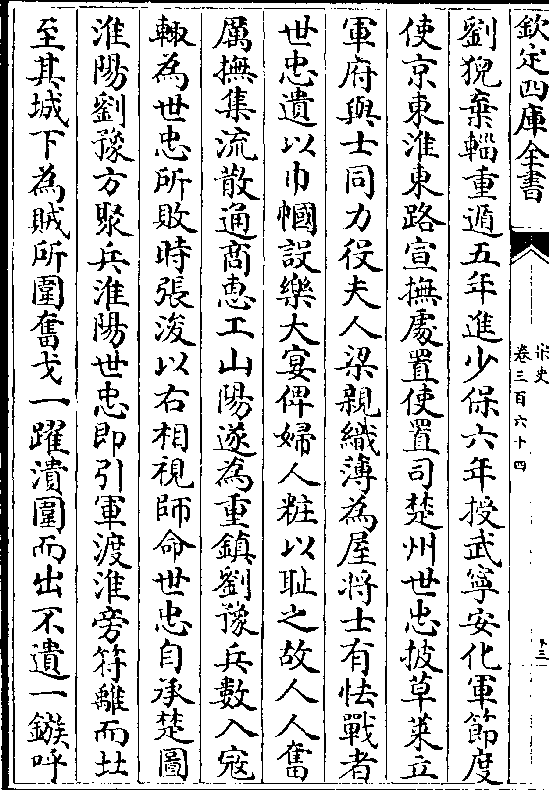 欽定四庫全書
宋史
卷三百六十四
十三
劉猊棄輜重遁五年進少保六年授武寧安化軍節度
使京東淮東路宣撫處置使置司楚州世忠披草萊立
軍府與士同力役夫人梁親織薄為屋將士有怯戰者
世忠遺以巾幗設樂大宴俾婦人粧以恥之故人人奮
厲撫集流散通商惠工山陽遂為重鎮劉豫兵數入寇
輒為世忠所敗時張浚以右相視師命世忠自承楚圖
淮陽劉豫方聚兵淮陽世忠即引軍渡淮旁符離而北
至其城下為賊所圍奮戈一躍潰圍而出不遺一鏃呼